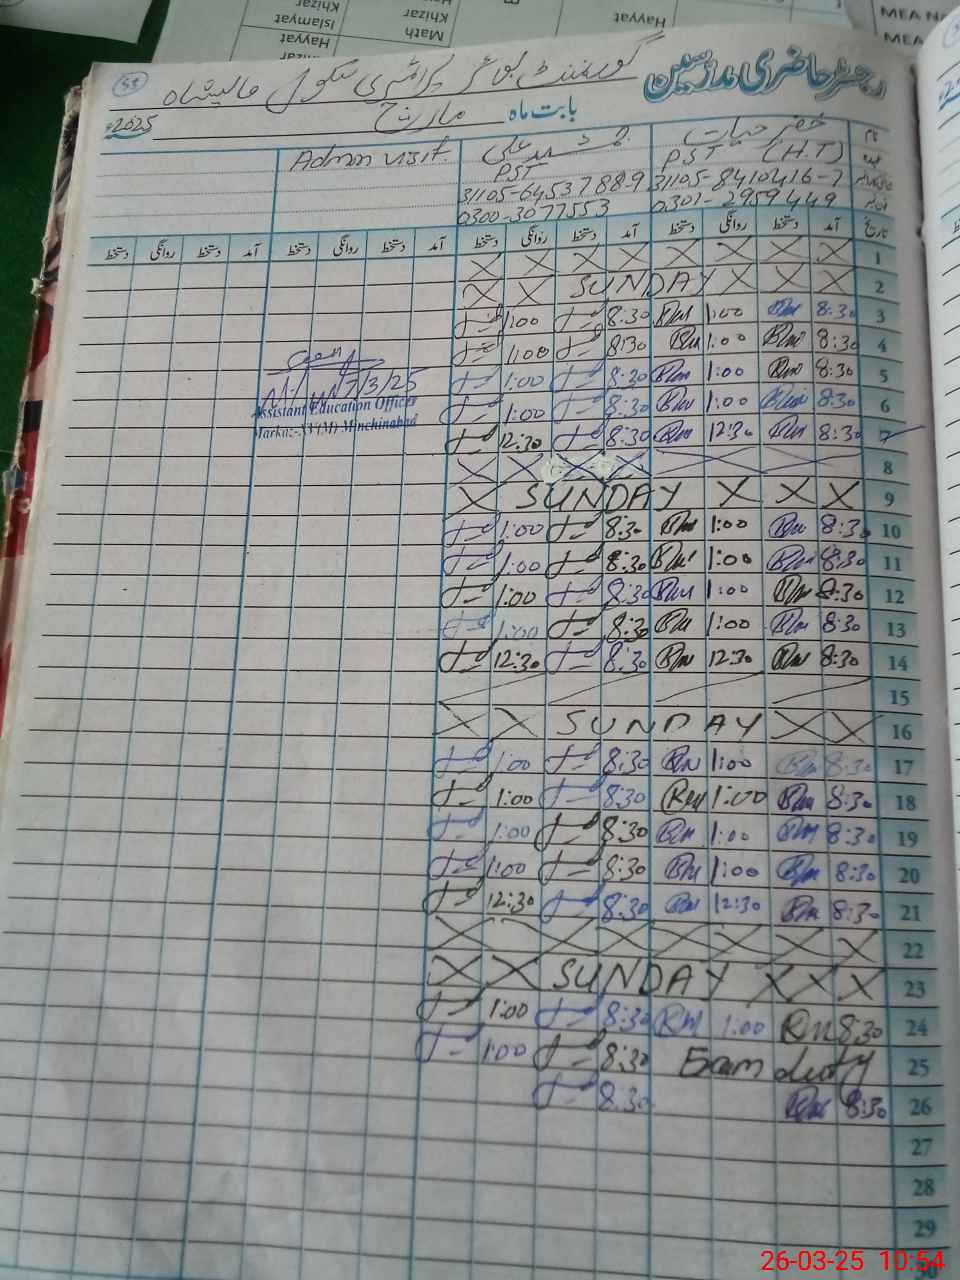 Math
Khizar
Islamyat
Hayyat
Khizar
Hayyat
MEA
MEA
53
رجسٹر حاضری مدرسین
گورنمنٹ بوائز پرائمری سکول
بابت ماہ مارچ 2025ء
نام خضر حیات جمشید علی Admn visit.
عہدہ PST (H.T) PST
31105-8410416-7 31105-6453788-9
0301-2959449 0300-3077553
تاریخ آمد دستخط روانگی دستخط آمد دستخط روانگی دستخط آمد دستخط روانگی دستخط آمد دستخط روانگی دستخط
1 X X X X X X X X
2 X X X SUNDAY X X
3 8:30 1:00 8:30 1:00
4 8:30 1:00 8:30 1:00
5 8:30 1:00 8:30 1:00
6 8:30 1:00 8:30 1:00
7 8:30 12:30 8:30 12:30
7/3/25
Assistant Education Officer
Markaz-XV(M) Minchinabad
8 X X X X
9 X SUNDAY X X X
10 8:30 1:00 8:30 1:00
11 8:30 1:00 8:30 1:00
12 8:30 1:00 8:30 1:00
13 8:30 1:00 8:30 1:00
14 8:30 12:30 8:30 12:30
15
16 X X SUNDAY X X
17 8:30 1:00 8:30 1:00
18 8:30 1:00 8:30 1:00
19 8:30 1:00 8:30 1:00
20 8:30 1:00 8:30 1:00
21 8:30 12:30 8:30 12:30
22 X X X X X X X
23 X X SUNDAY X X X
24 8:30 1:00 8:30 1:00
25 Exam duty 8:30 1:00
26 8:30 8:30
27
28
29
26-03-25 10:54